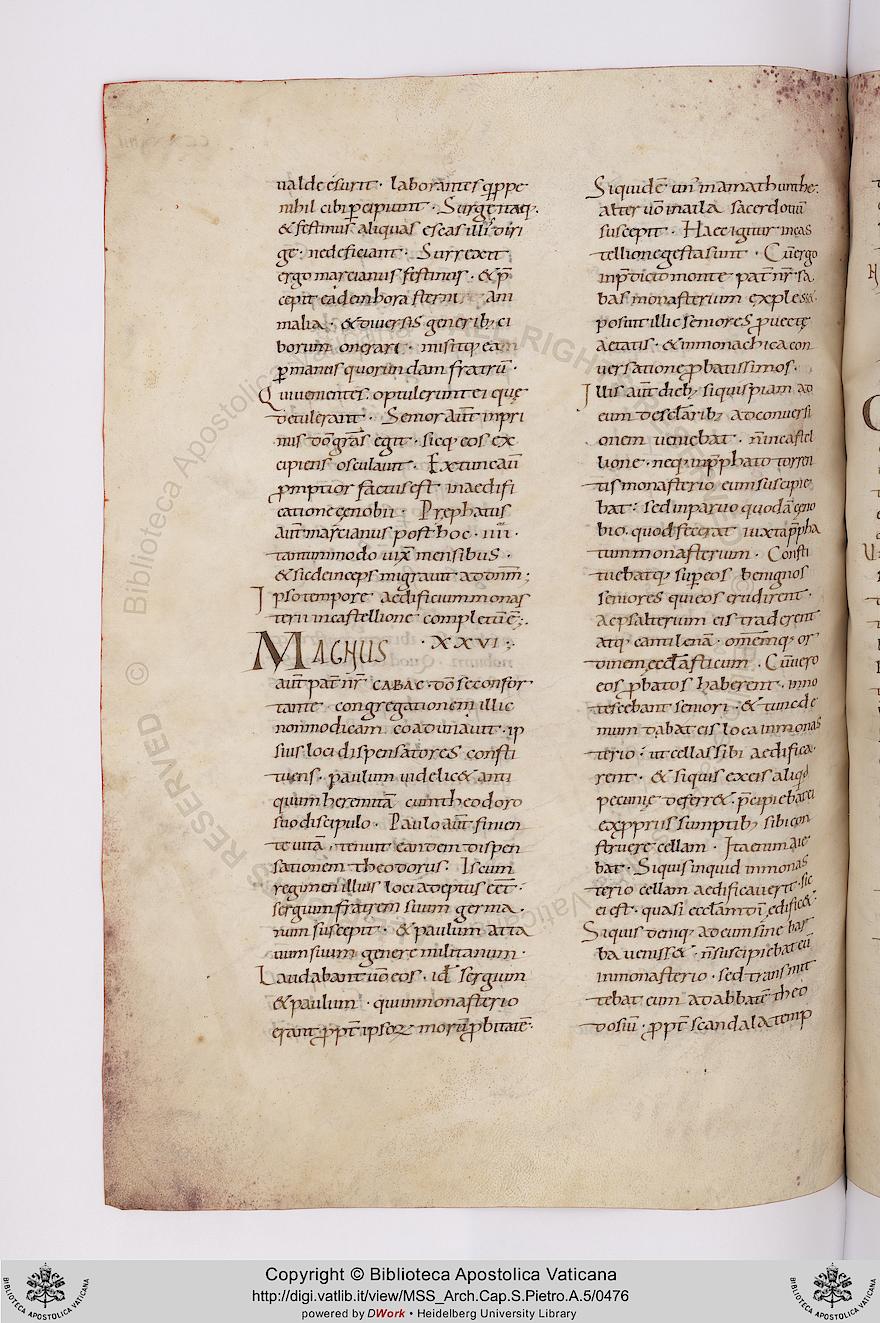 ualde esurit · laborantes qˀppe
nihil cibi ꝑcipiunt · Surge itaq.
& festinus aliquas escas illis diri
ge · ne deficiant · Surrexit
ergo marcianus festinus · & p̄
cepit eadem hora sterni ani
malia · & diuersis generib; ci
borum onerari · misitq; ea in
ꝑ manus quorundam fratrū ·
Qui uenientes optulerunt ei quę
detulerant · Senior aūt inpri
mis dō grās egit · sicq; eos ex
cipiens osculauit · Ex tunc aūt
promptior factus est in aedifi
catione cenobii · Prephatus
aūt marcianus post hoc · IIII ·
tantummodo uix̄ mensibus ·
& sic deinceps migrauit ad dnm̄ ;
Ipso tempore aedificiū monas
terii in castellione completū ē ;.
MAGNUS · XXVI :.
aūt pat̄ nr̄ SABAS · dō se confor
tante congregationem illic
non modicam coadunauit · ip
sius loci dispensatores consti
tuens · paulum uidelic& anti
quum heremitā cum theodoro
suo discipulo · Paulo aūt finien
te uitā , tenuit eandem dispen
sationem theodorus · Is cum
regimen illius loci adeptus eēt ·
sergium fratrem suum germa ·
num suscepit · & paulum atta
uum suum genere militanum ·
Laudabant uō eos · id ē sergium
& paulum · qui in monasterio
erant · ꝓpt̄ ipsoꝝ morū ꝓbitatē ·
Siquidē un' in amathunthe :
alter uō in aila sacerdotiū
suscepit · Haec igitur in cas
tellione gesta sunt · Cū ergo
in p̄dicto monte pat̄ nr̄ sa
bas monasterium explesse
posuit illic seniores ꝓuectę
aetatis · & in monachica con
uersatione ꝓbatissimos ·
Illis aūt dieb; siquispiam ad
eum de sclārib; ad conuersi
onem ueniebat · n̄ in castel
lione · neq; in p̄phato torren
tis monasterio eum suscipie
bat : sed in paruo quodā ceno
bio · quod fecerat iuxta p̄pha
tum monasterium · Consti
tuebatq; sup eos benignos
seniores qui eos erudirent ·
ac psalterium eis traderent
atq; cantilenā · omēmq; or
dinem ecclāsticum · Cū uero
eos ꝓbatos haberent · inno
tescebant seniori · & tunc de
mum dabat eis loca in monas
terio : ut cellas sibi aedifica ·
rent · & siquis ex eis aliqd
pecunię deferr& · p̄cipiebat ei
ex ꝓpriis sumptib; sibi con
struere cellam · Ita enim aie
bat · Siquis inquid in monas
terio cellam aedificauerit · sic
ei est · quasi ecclām dī edific& ·
Siquis deniq; ad eum sine bar
ba ueniss& · n̄ suscipiebat eū
in monasterio · sed transmit
tebat eum ad abbatē theo
dosiū · ꝓpt̄ scandala & temp
Copyright © Biblioteca Apostolica Vaticana
http://digi.vatlib.it/view/MSS_Arch.Cap.S.Pietro.A.5/0476
powered by DWork • Heidelberg University Library